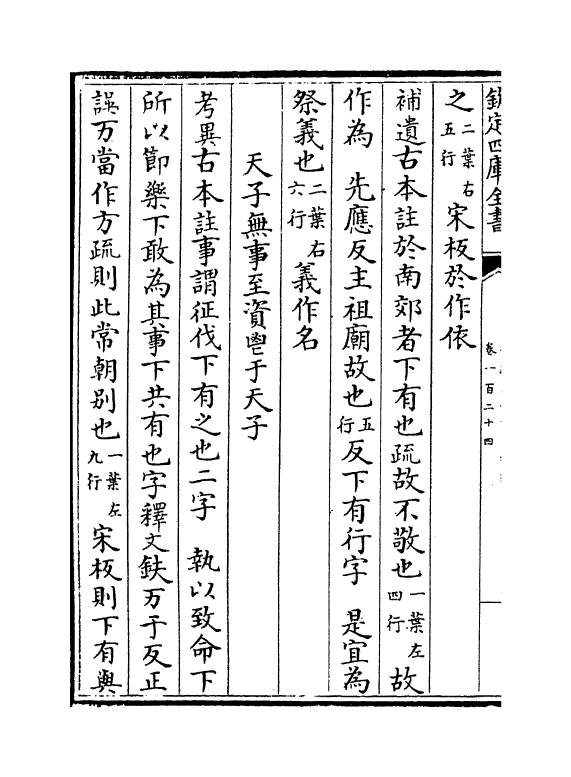 欽定四庫全書
卷一百二十四
之二葉右五行宋板於作依
補遺古本註於南郊者下有也疏故不敬也一葉左四行故
作為　先應反主祖廟故也五行反下有行字　是宜為
祭義也二葉右六行義作名
天子無事至資鬯于天子
考異古本註事謂征伐下有之也二字　執以致命下
所以節樂下敢為其事下共有也字釋文鈇万于反正
誤万當作方疏則此常朝别也一葉左九行宋板則下有與